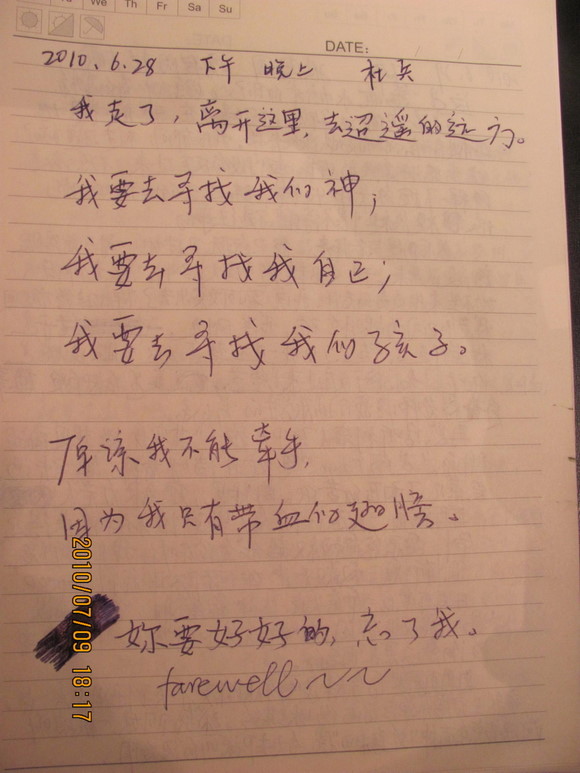 We Th Fr Sa Su
DATE:
2010.6.28 下午 晚上 杜兵
我走了，离开这里，去迢遥的远方。
我要去寻找我的神；
我要去寻找我自己；
我要去寻找我的孩子。
原谅我不能牵手，
因为我只有带血的翅膀。
妳要好好的，忘了我。
farewell~~
2010/07/09 18:17